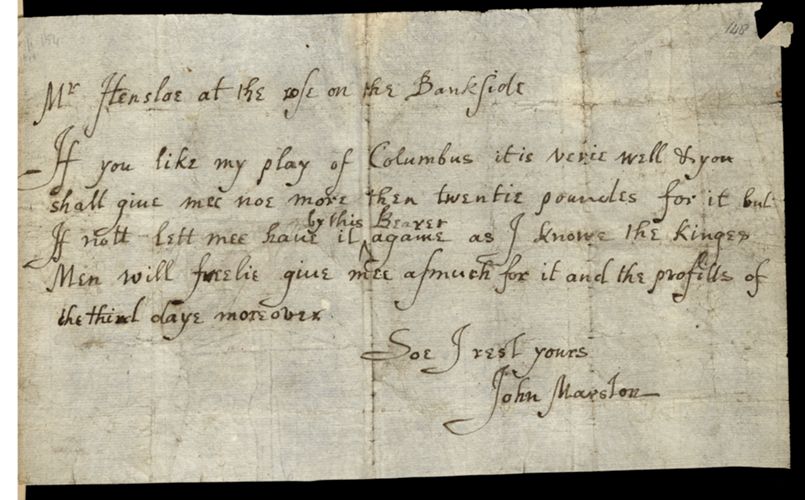 148
Mr Hensloe at the rose on the Bankside
If you like my play of Columbus it is verie well & you
shall give mee noe more then twentie poundes for it but
by this Bearer
If nott lett mee have it agame as I knowe the kinges
Men will freelie give mee asmuch for it and the profitts of
the third daye moreover
Soe I rest yours
John Marston